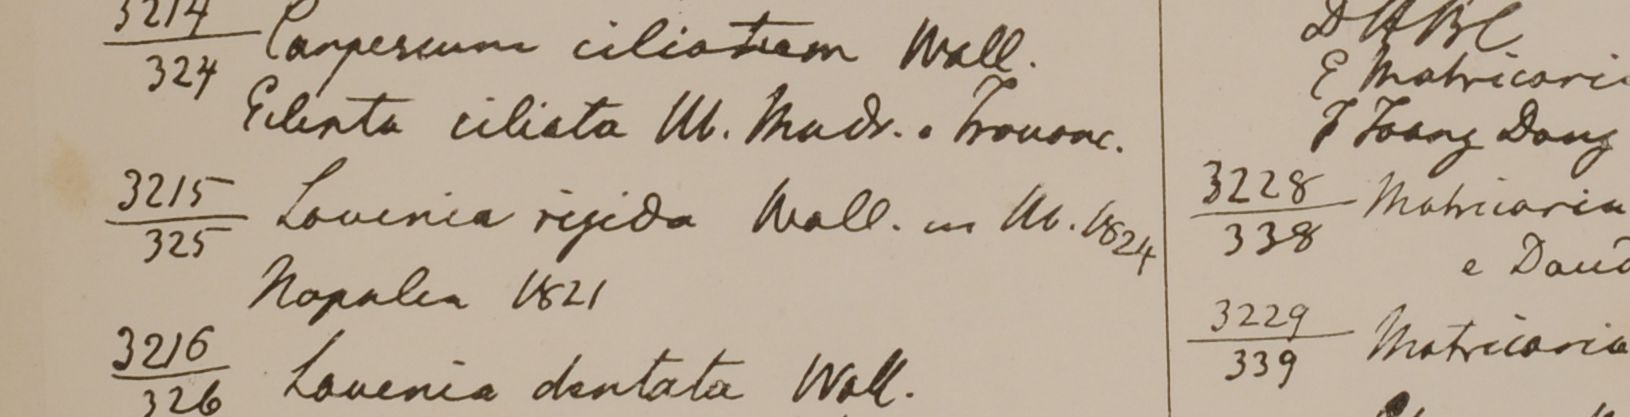 3214
324 Carpesium ciliatum Wall.
ciliata Hb. Madr.
3215
325 Lavenia rigida Wall. in Hb. 1824
Napalia 1821
3216
326 Lavenia dentata Wall.
E Matricari
3228
338 Matricaria
e David
3229
339 Matricaria